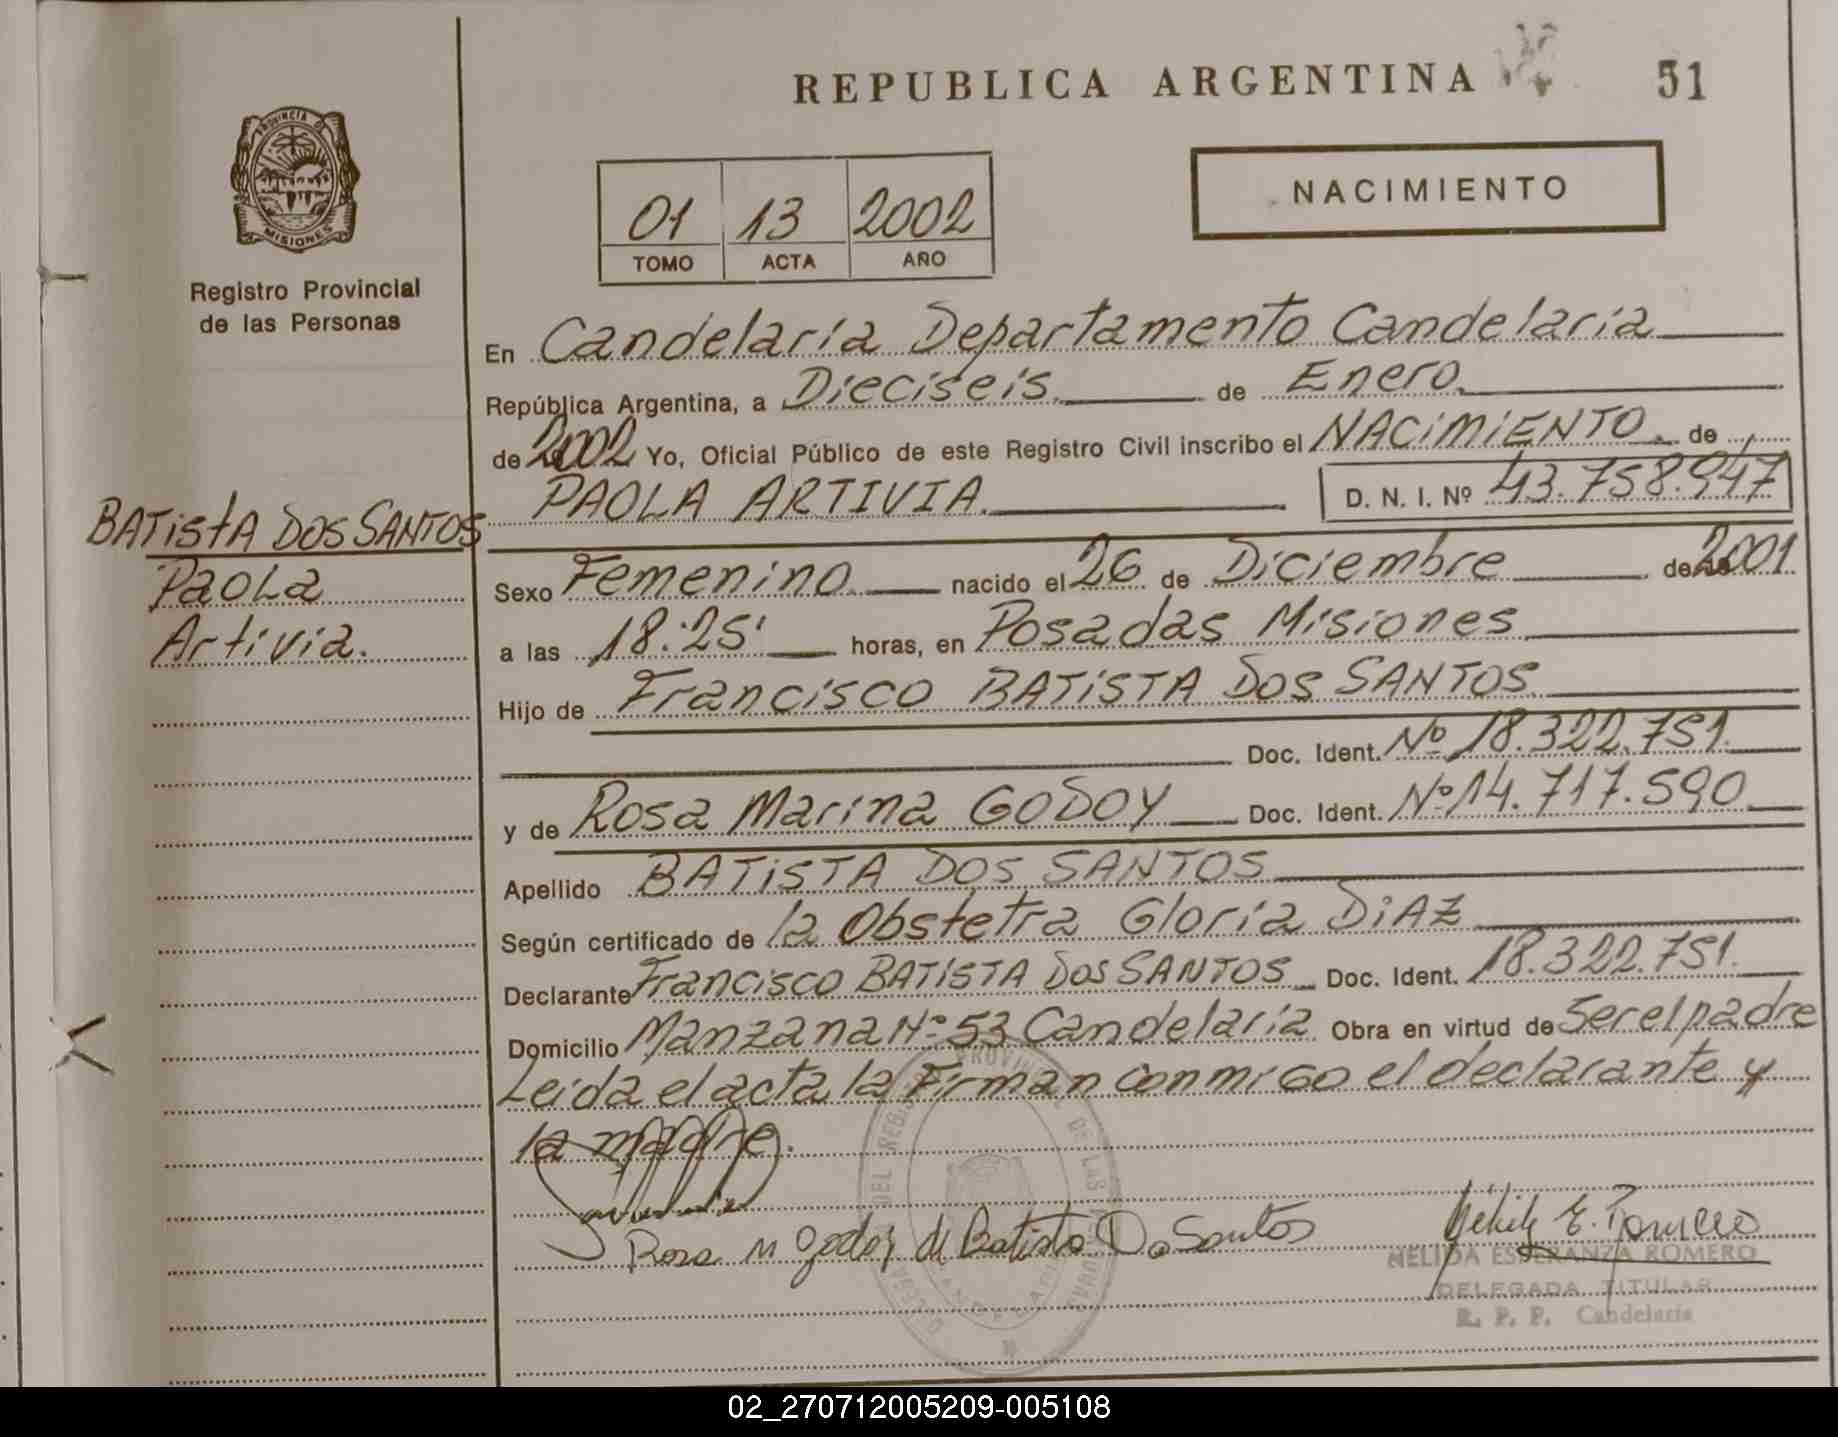 REPUBLICA ARGENTINA
51
PROVINCIA DE
MISIONES
Registro Provincial
de las Personas
01 13 2002
TOMO ACTA AÑO
NACIMIENTO
En Candelaria Departamento Candelaria
República Argentina, a Dieciseis de Enero
de 2002 Yo, Oficial Público de este Registro Civil inscribo el NACIMIENTO de
PAOLA ARTIVIA
D. N. I. Nº 43.758.947
BATISTA DOS SANTOS
PAOLA
Artivia.
Sexo Femenino nacido el 26 de Diciembre de 2001
a las 18:25' horas, en Posadas Misiones
Hijo de Francisco BATISTA DOS SANTOS
Doc. Ident. Nº 18.322.751.
y de Rosa Marina GODOY Doc. Ident. Nº 14.717.590
Apellido BATISTA DOS SANTOS
Según certificado de la Obstetra Gloria DIAZ
Declarante Francisco BATISTA DOS SANTOS Doc. Ident. 18.322.751.
Domicilio Manzana Nº 53 Candelaria Obra en virtud de Ser el padre
Leida el acta la Firman conmigo el declarante y
la madre.
Rosa M Godoy de Batista Do Santos
NELIDA ESPERANZA ROMERO
DELEGADA TITULAR
R. P. P. Candelaria
02_270712005209-005108